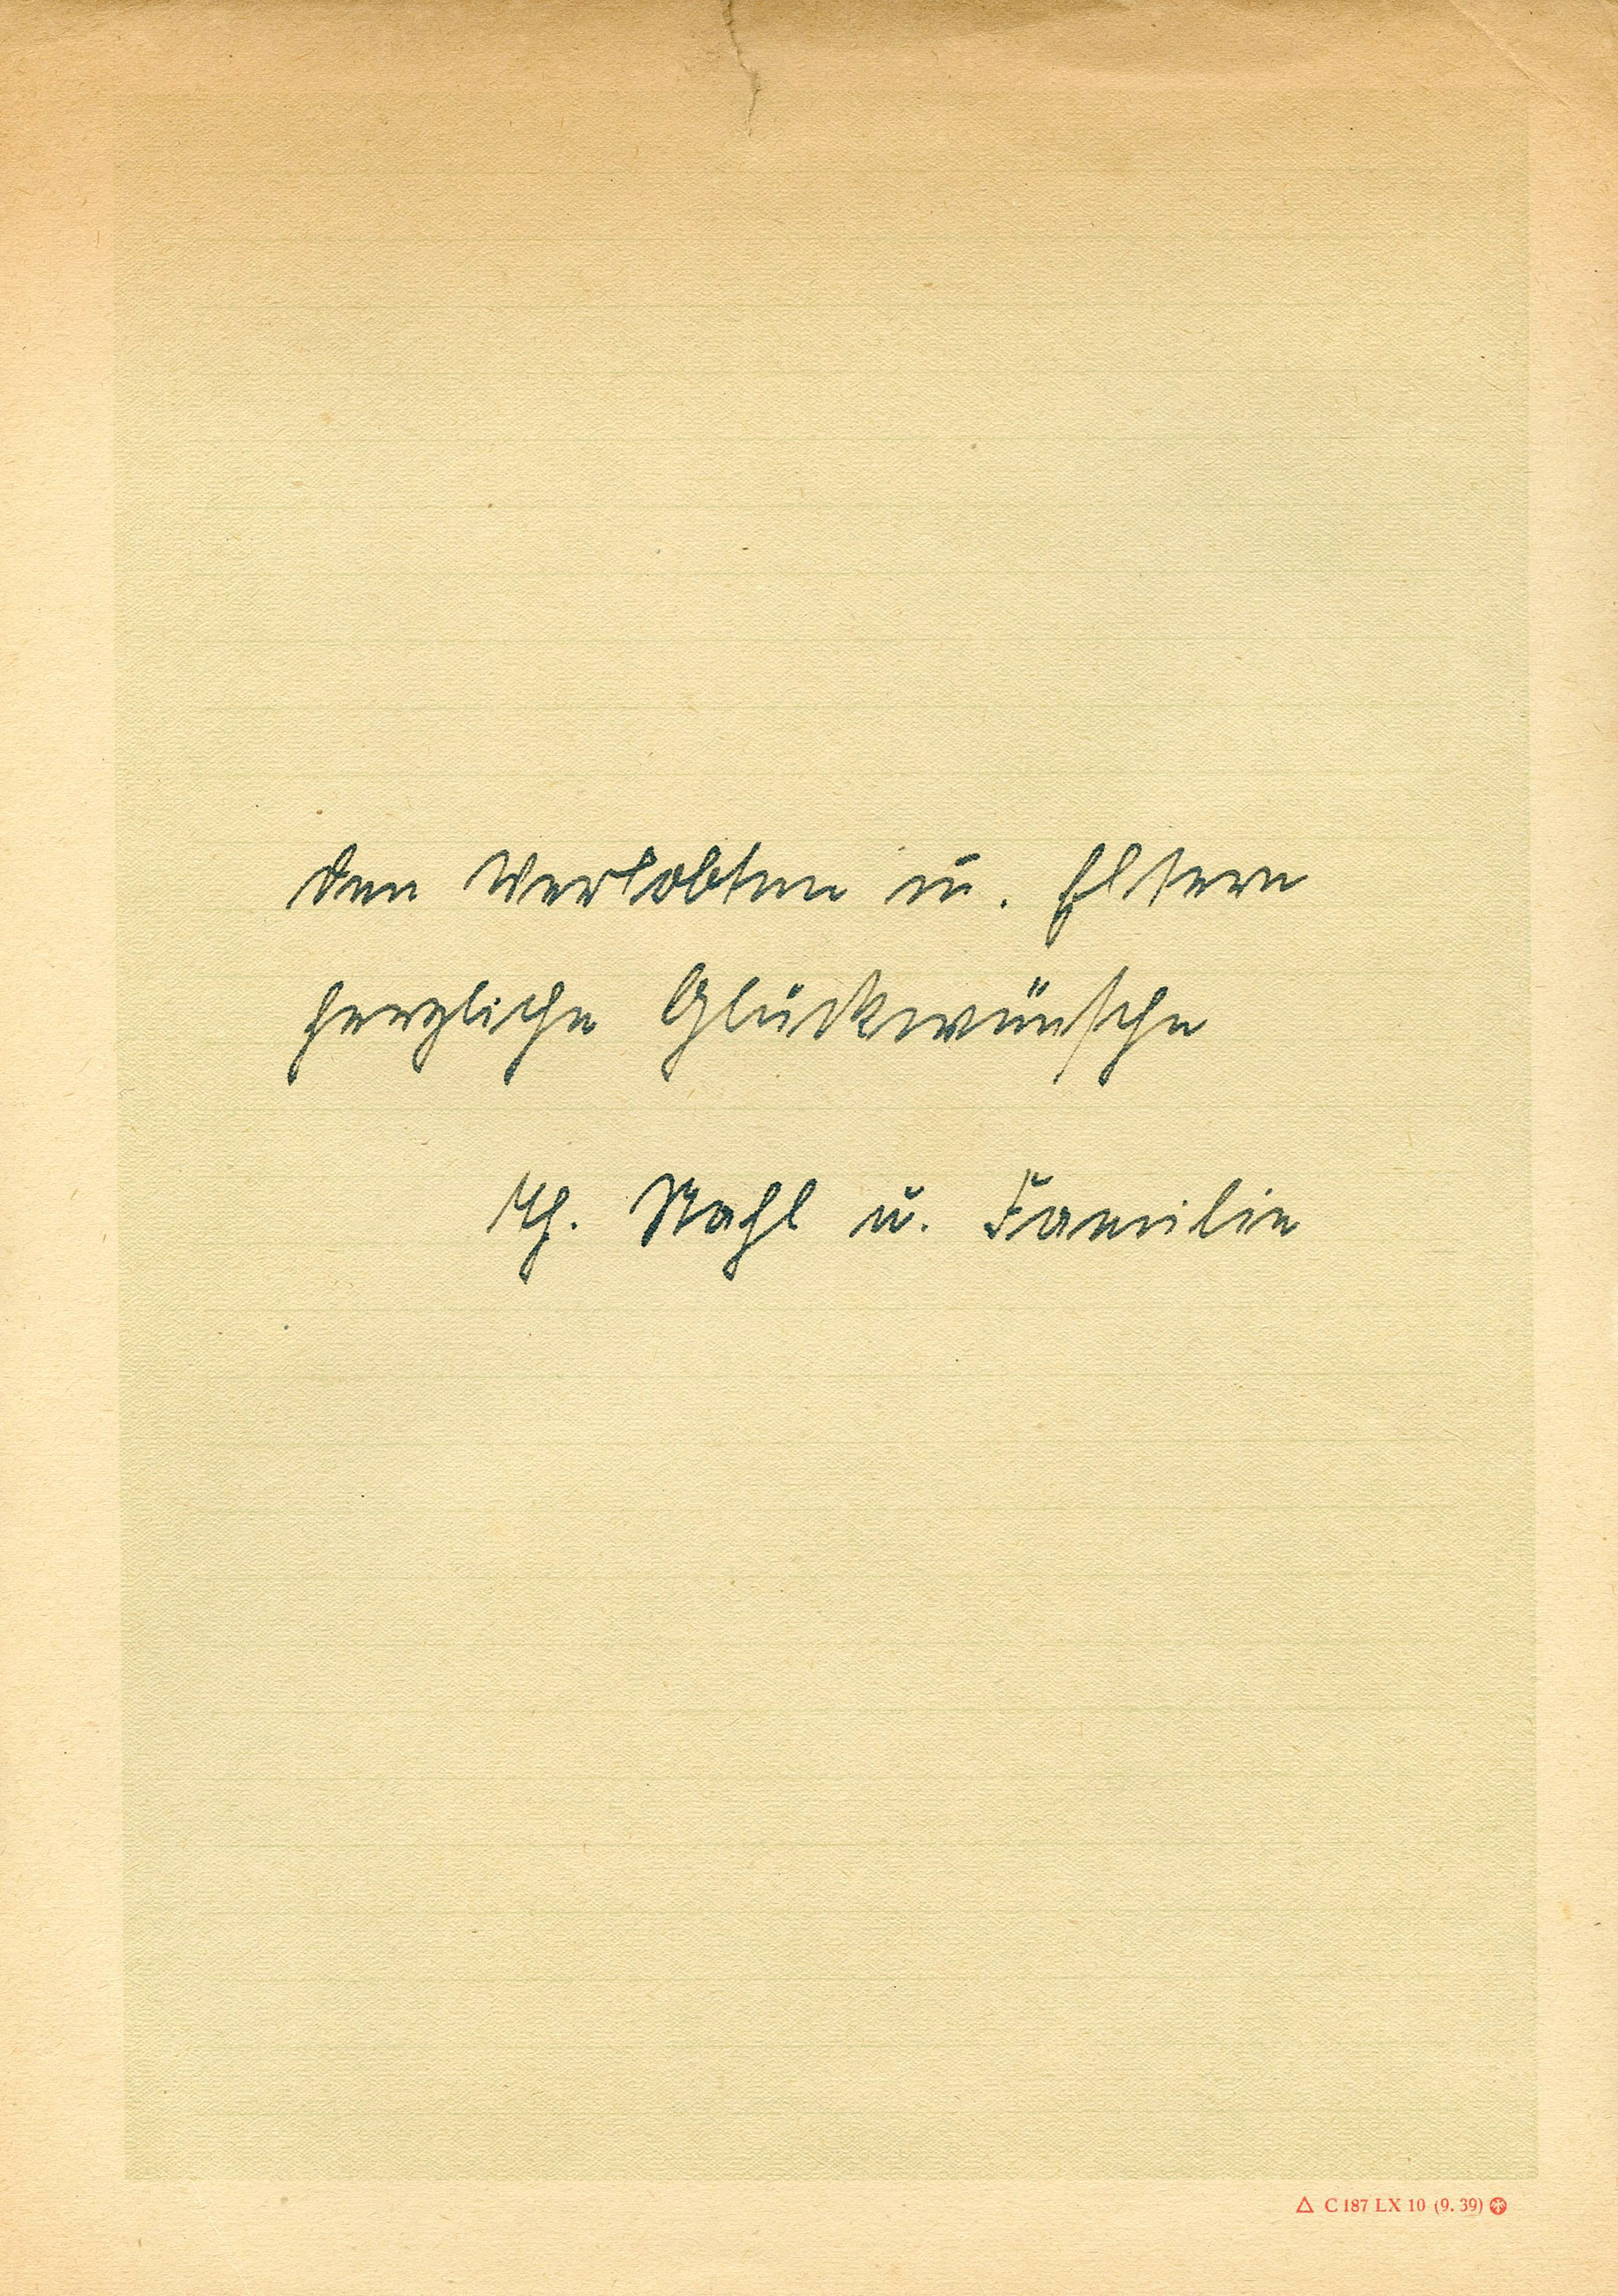 den Verlobten u. Eltern
herzliche Glückwünsche
Th. Stahl u. Familie
△ C 187 LX 10 (9. 39)